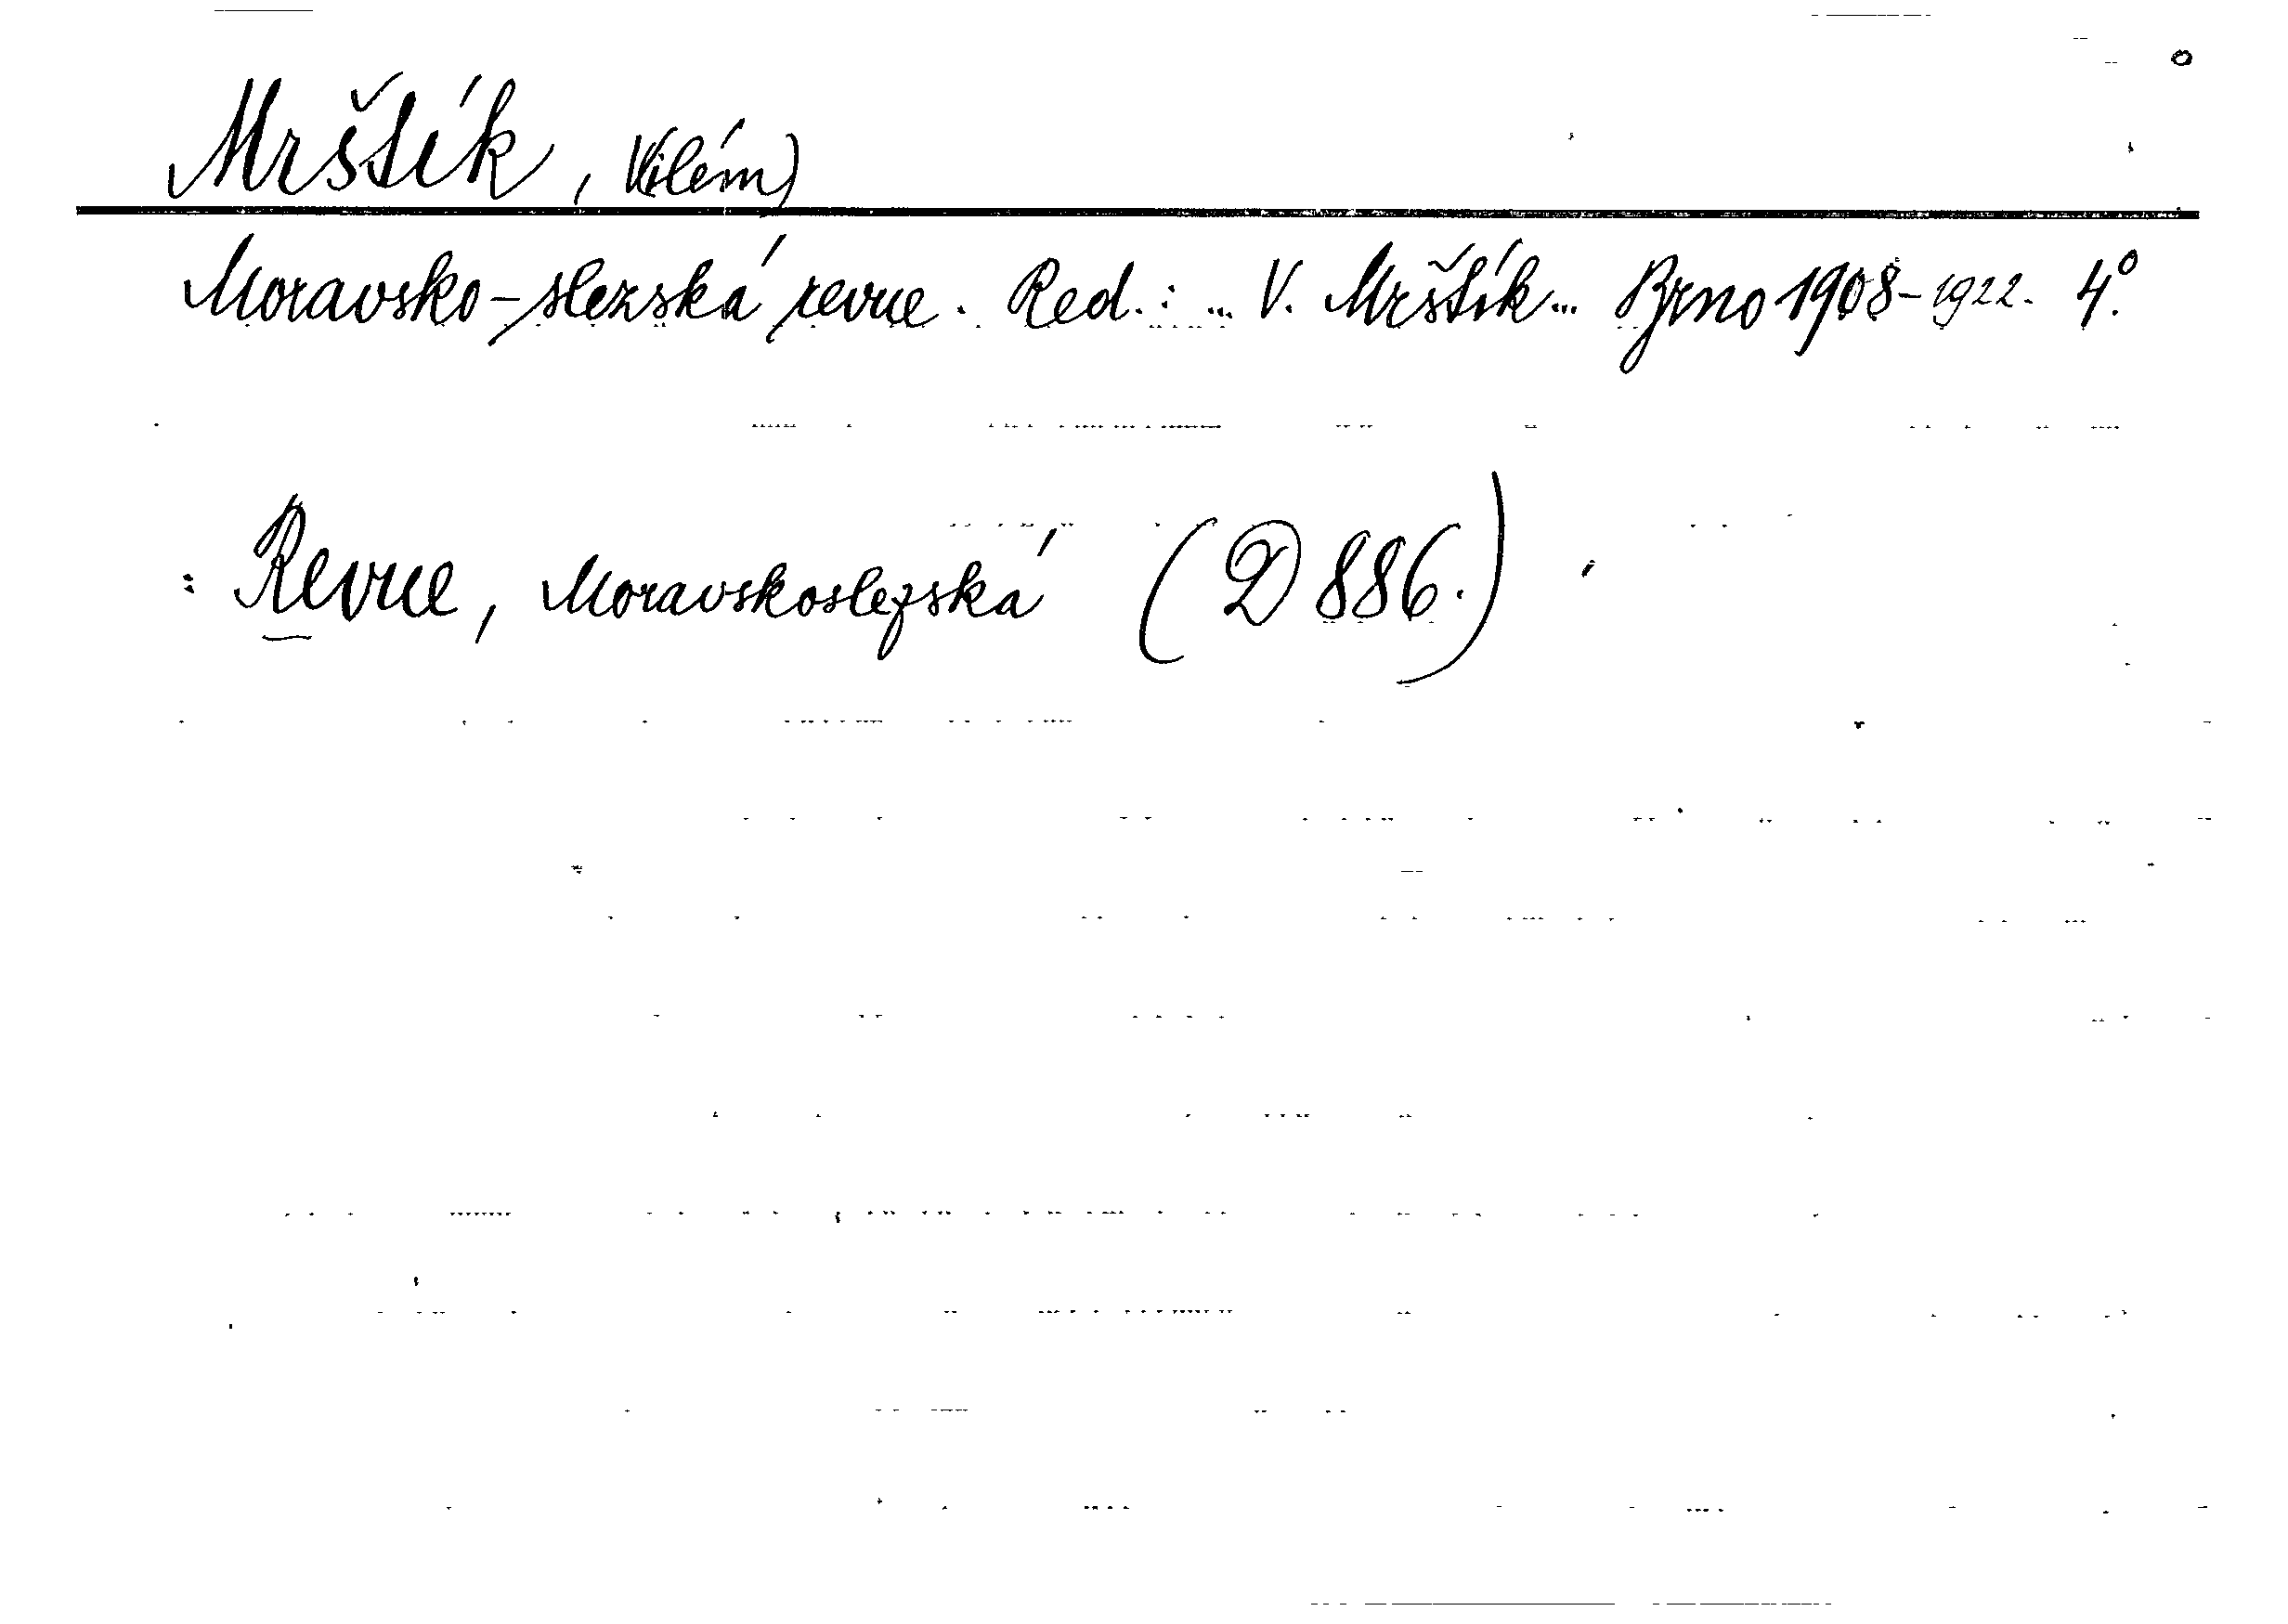 Mrštík, Vilém)
Moravsko-slezská revue. Red.: ... V. Mrštík... Brno 1908-1922. 4°.
: Revue, Moravskoslezská (D 886.)